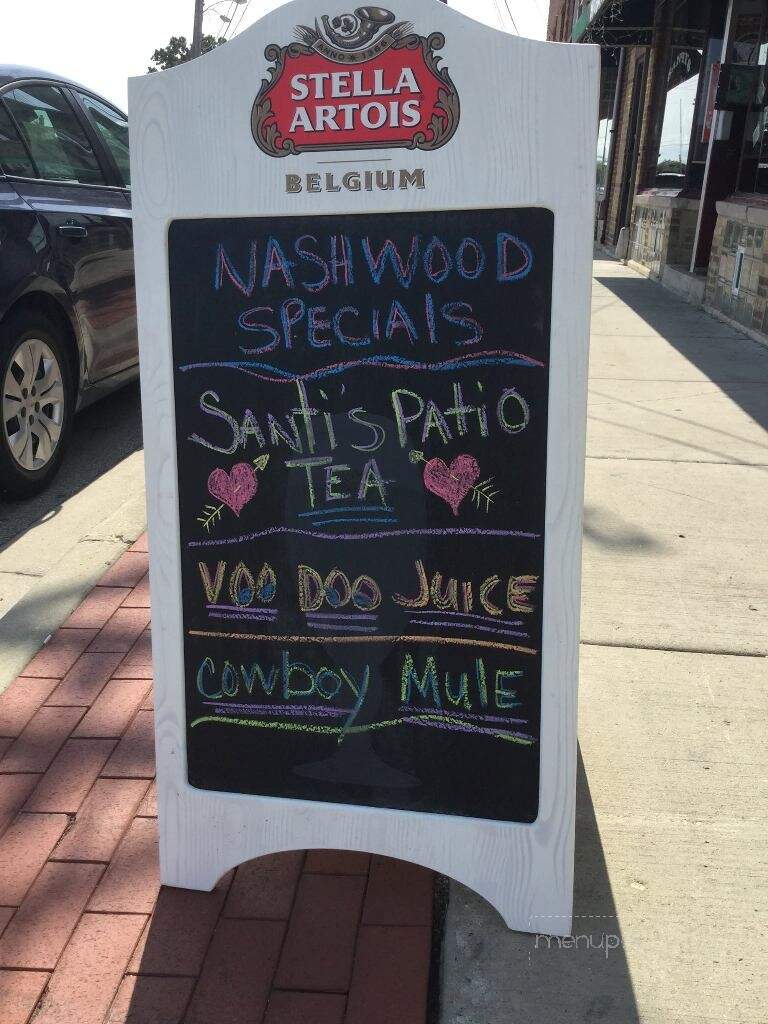 ANNO 1366
STELLA
ARTOIS
BELGIUM
NASHWOOD
SPECIAlS
SANTi'S PATiO
TEA
VOO DOO JUICE
COWboy MUlE
menup